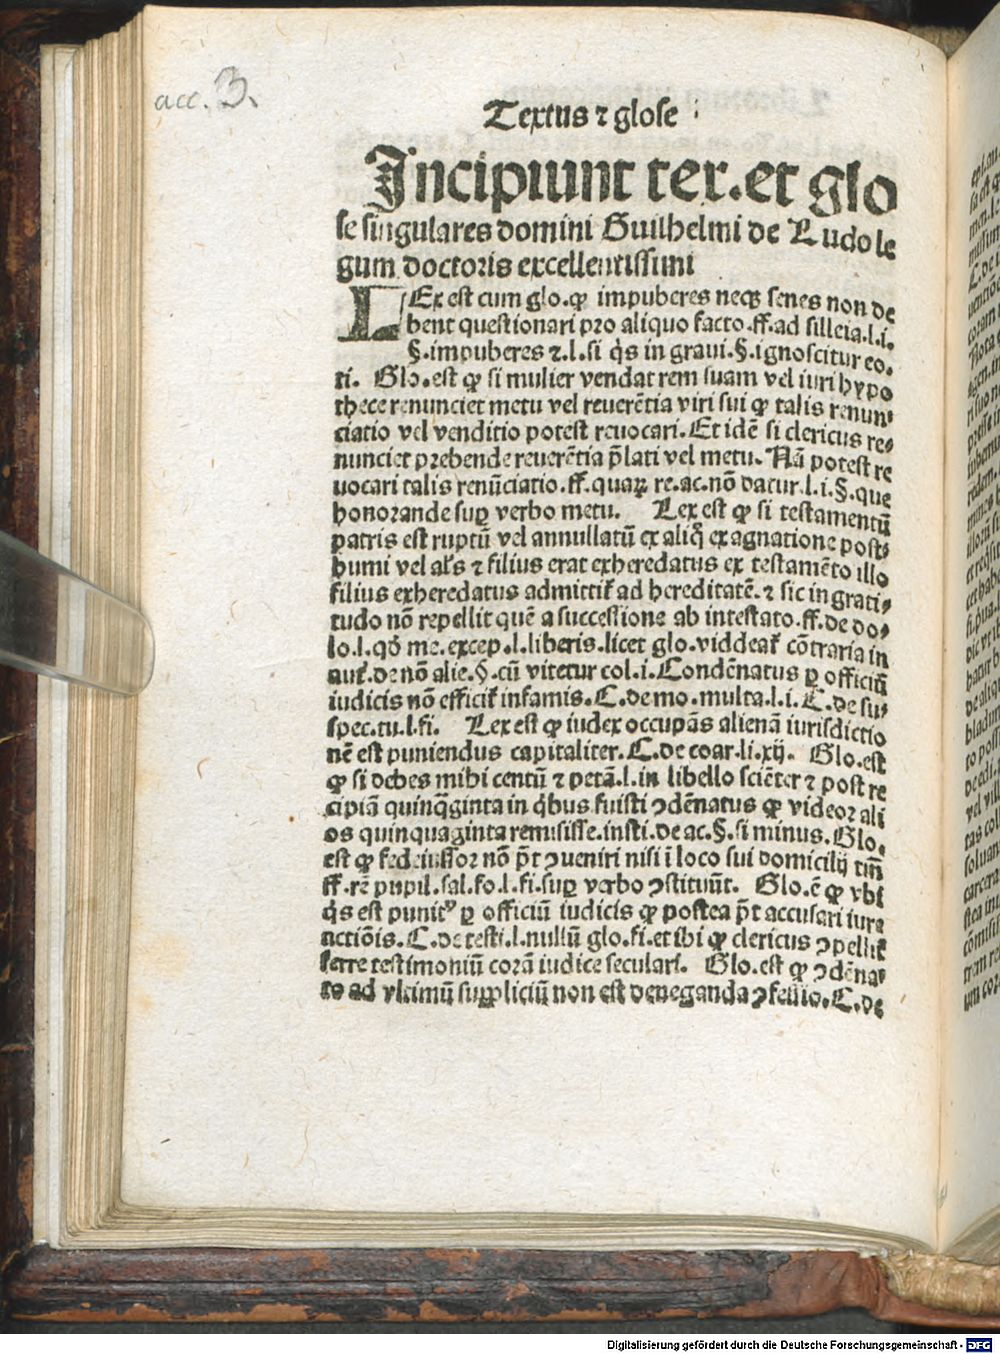 acc. 3.
Textus ⁊ glose
Incipiunt tex. et glo
se singulares domini Guilhelmi de Ludo le
gum doctoris excellentissimi
LEx est cum glo. ꝙ impuberes neqꝫ senes non de
bent questionari pro aliquo facto. ff. ad silleia. l. i.
§. impuberes ⁊. l. si q̄s in graui. §. ignoscitur eo.
ti. Glo. est ꝙ si mulier vendat rem suam vel iuri hypo
thece renunciet metu vel reuerētia viri sui ꝙ talis renun⸗
ciatio vel venditio potest reuocari. Et idē si clericus re⸗
nunciet prebende reuerētia p̄lati vel metu. Nā potest re
uocari talis renūciatio. ff. quaꝝ re. ac. nō datur. l. i. §. que
honorande suꝑ verbo metu. Lex est ꝙ si testamentū
patris est ruptū vel annullatū ex aliq̄ ex agnatione post⸗
humi vel al's ⁊ filius erat exheredatus ex testamēto illo
filius exheredatus admittit̄ ad hereditatē. ⁊ sic ingrati⸗
tudo nō repellit quē a successione ab intestato. ff. de do⸗
lo. l. qd' me. excep. l. liberis. licet glo. viddeat̄ cōtraria in
aut̄. de nō alie. §. cū vitetur col. i. Condēnatus ꝑ officiū
iudicis nō efficit̄ infamis. C. de mo. multa. l. i. C. de su⸗
spec. tu. l. fi. Lex est ꝙ iudex occupās alienā iurisdictio
nē est puniendus capitaliter. C. de coar. li. xij. Glo. est
ꝙ si debes mihi centū ⁊ petā. l. in libello sciēter ⁊ post re
cipiā quinq̄ginta in q̄bus fuisti ꝯdēnatus ꝙ videor ali
os quinquaginta remisisse. insti. de ac. §. si minus. Glo.
est ꝙ fedeiussor nō p̄t ꝯueniri nisi ī loco sui domicilij tm̄
ff. rē pupil. sal. fo. l. fi. suꝑ verbo ꝯstituūt. Glo. ē ꝙ vbi
q̄s est punitꝰ ꝑ officiū iudicis ꝙ postea p̄t accusari iure
actiōis. C. de testi. l. nullū glo. fi. et ibi ꝙ clericus ꝯpellit̄
ferre testimoniū corā iudice seculari. Glo. est ꝙ ꝯdēna⸗
to ad vltimū suꝑpliciū non est deneganda ꝯfessio. C. de
Digitalisierung gefördert durch die Deutsche Forschungsgemeinschaft - DFG